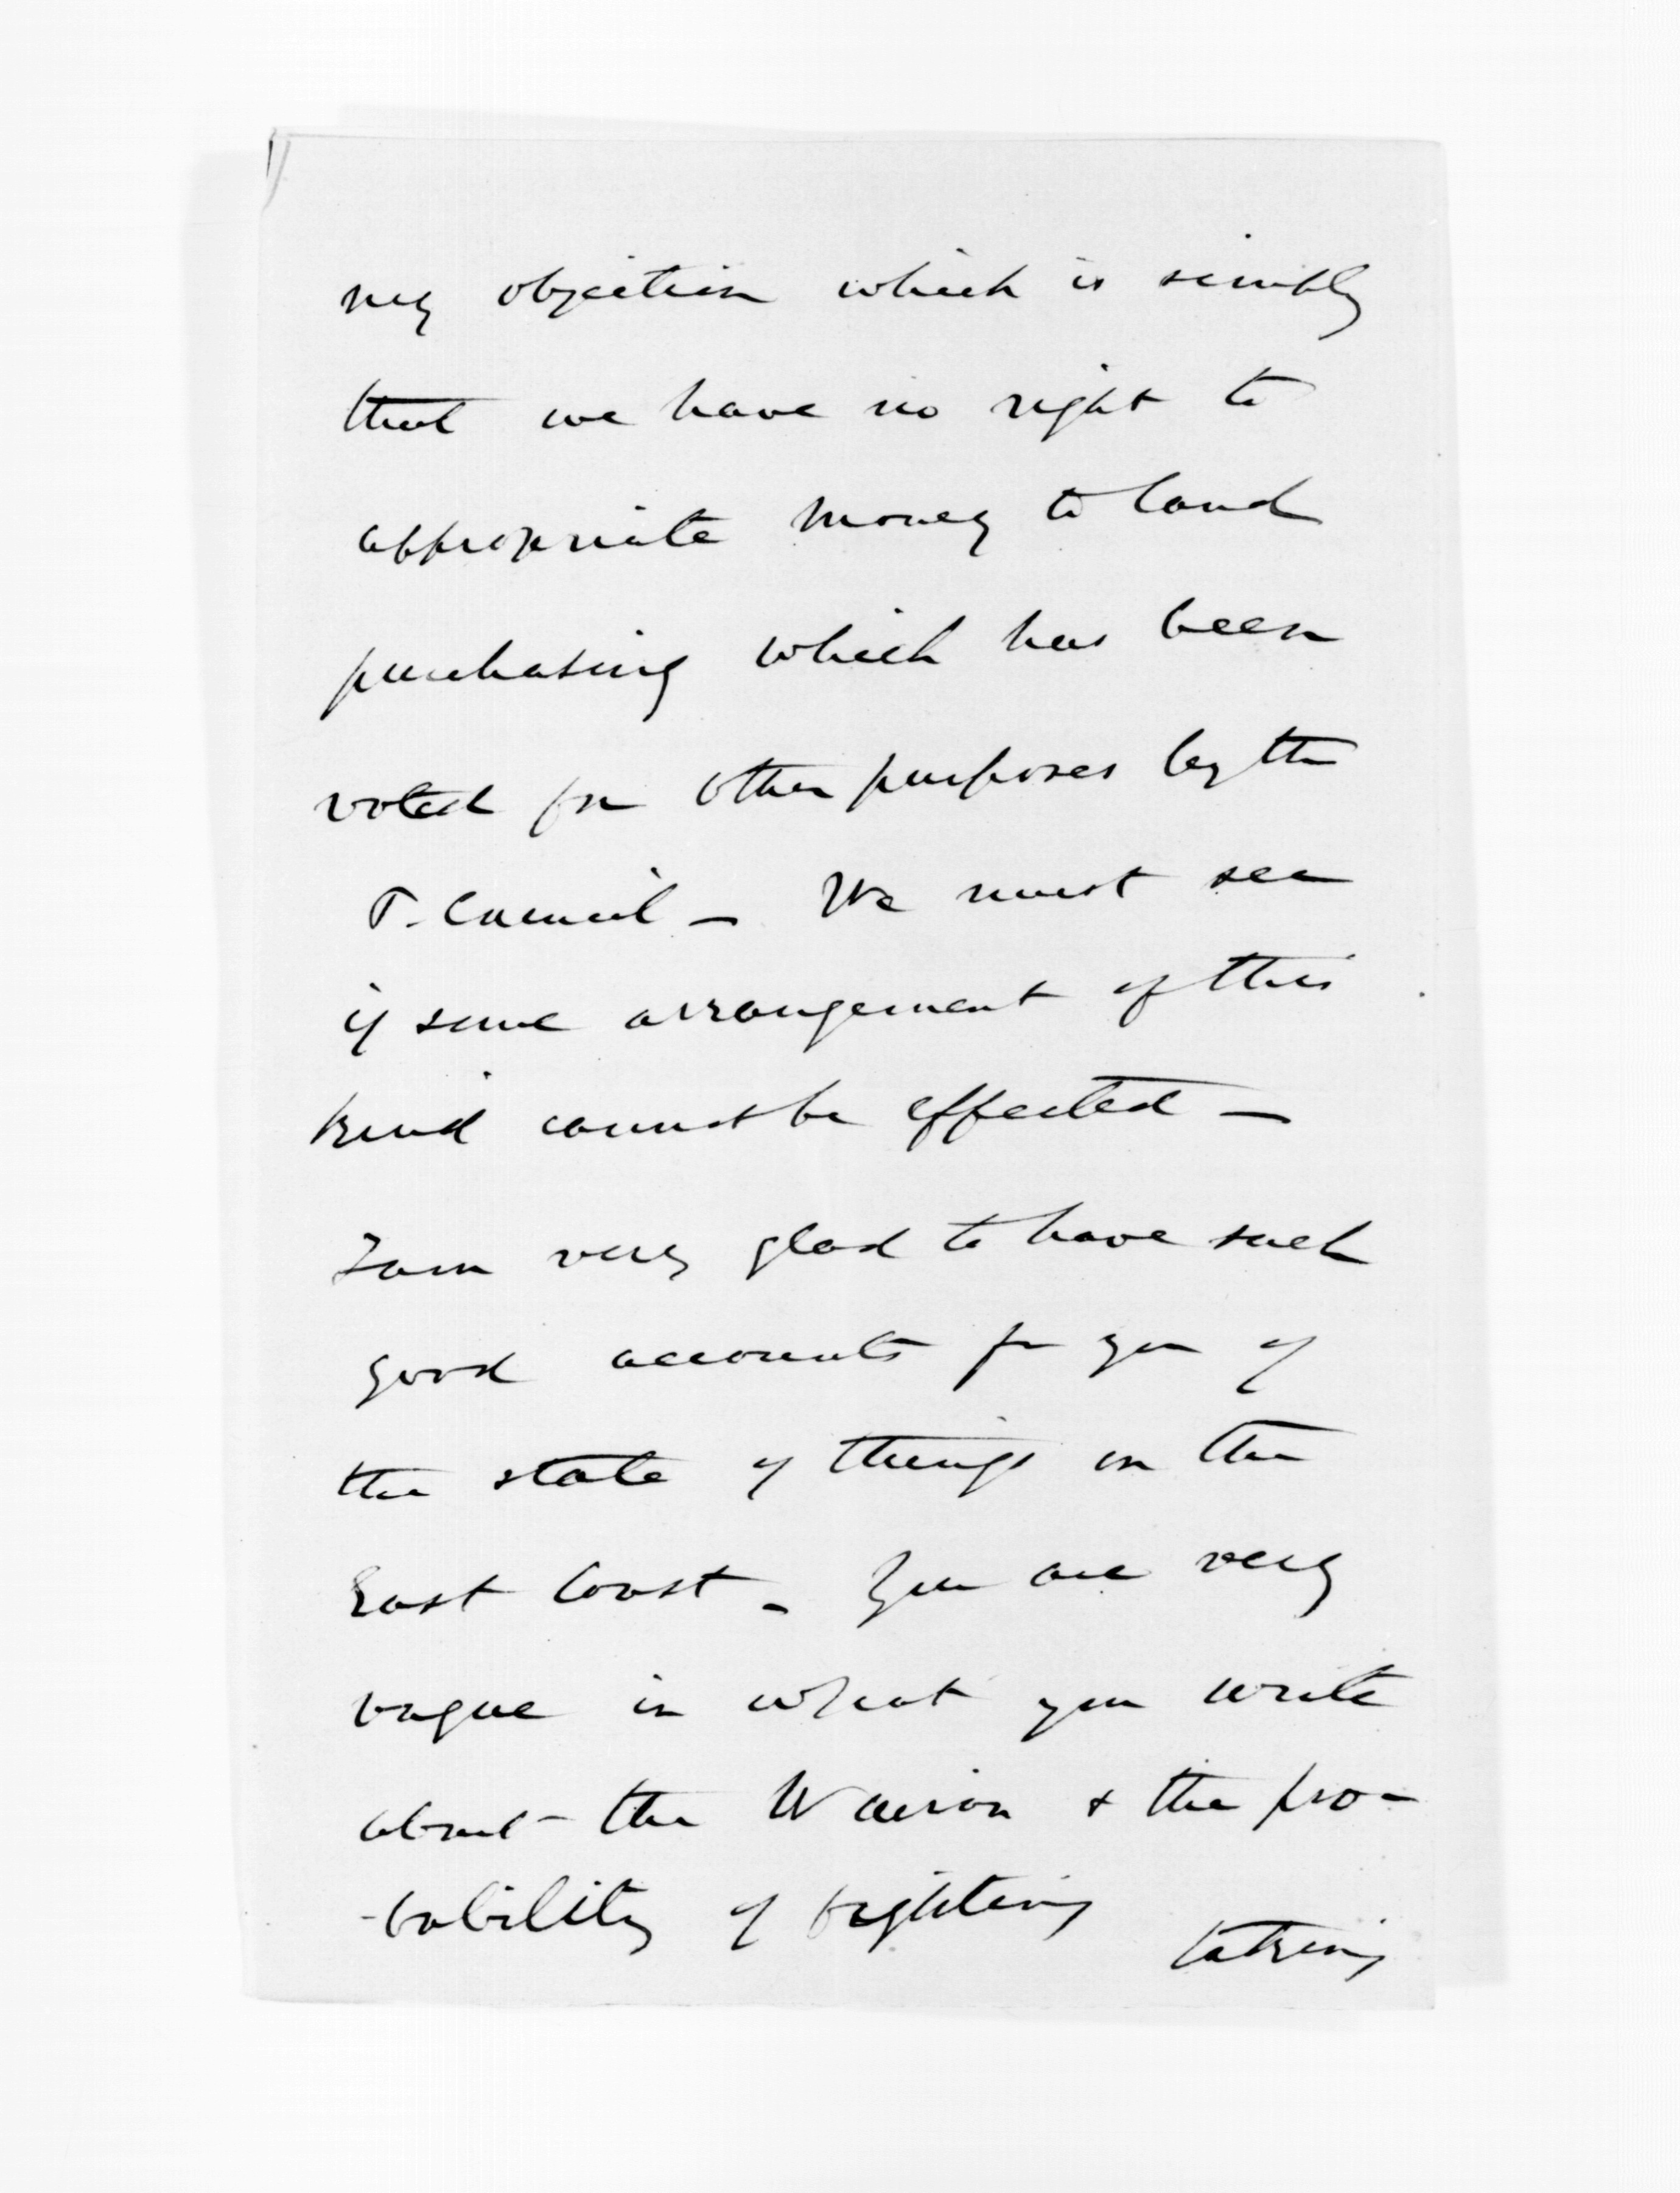 my objection which is simply
that we have no right to
appropriate money to land
purchasing which has been
voted for other purposes by the
P. Council - We must see
if some arrangement of this
kind cannot be effected -
I am very glad to have such
good accounts fm you of
the state of things on the
East Coast - You are very
vague in what you write
about the Wairoa & the pro-
-bability of fighting
taking